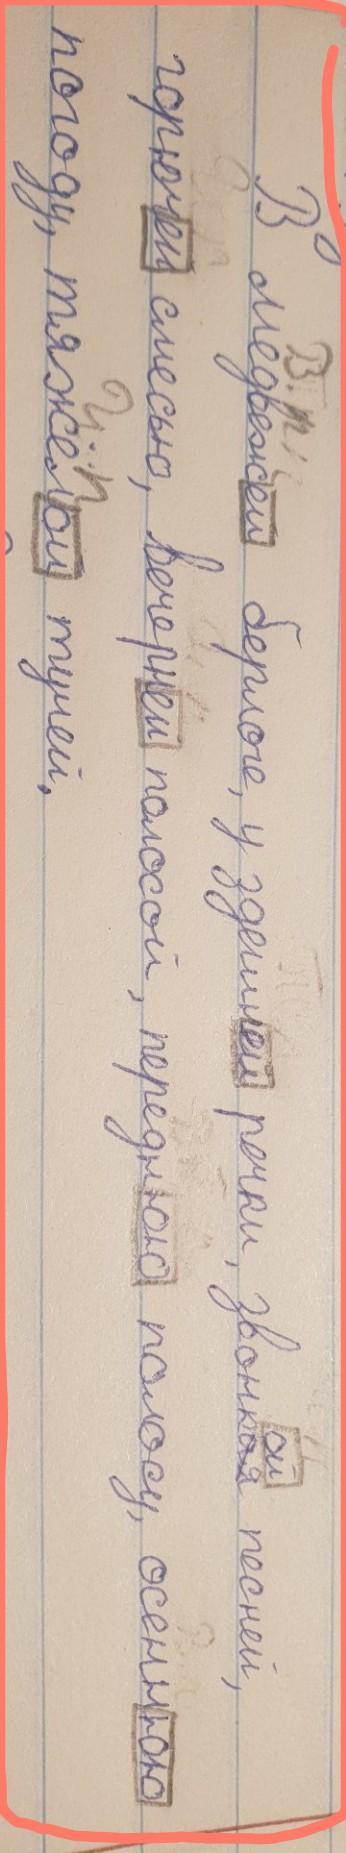 В медвежей берлоге, у здешней речки, звонкой песней,
горючей смесью, вечерней полосой, переднюю полосу, осеннюю
погоду, тяжелой тучей.